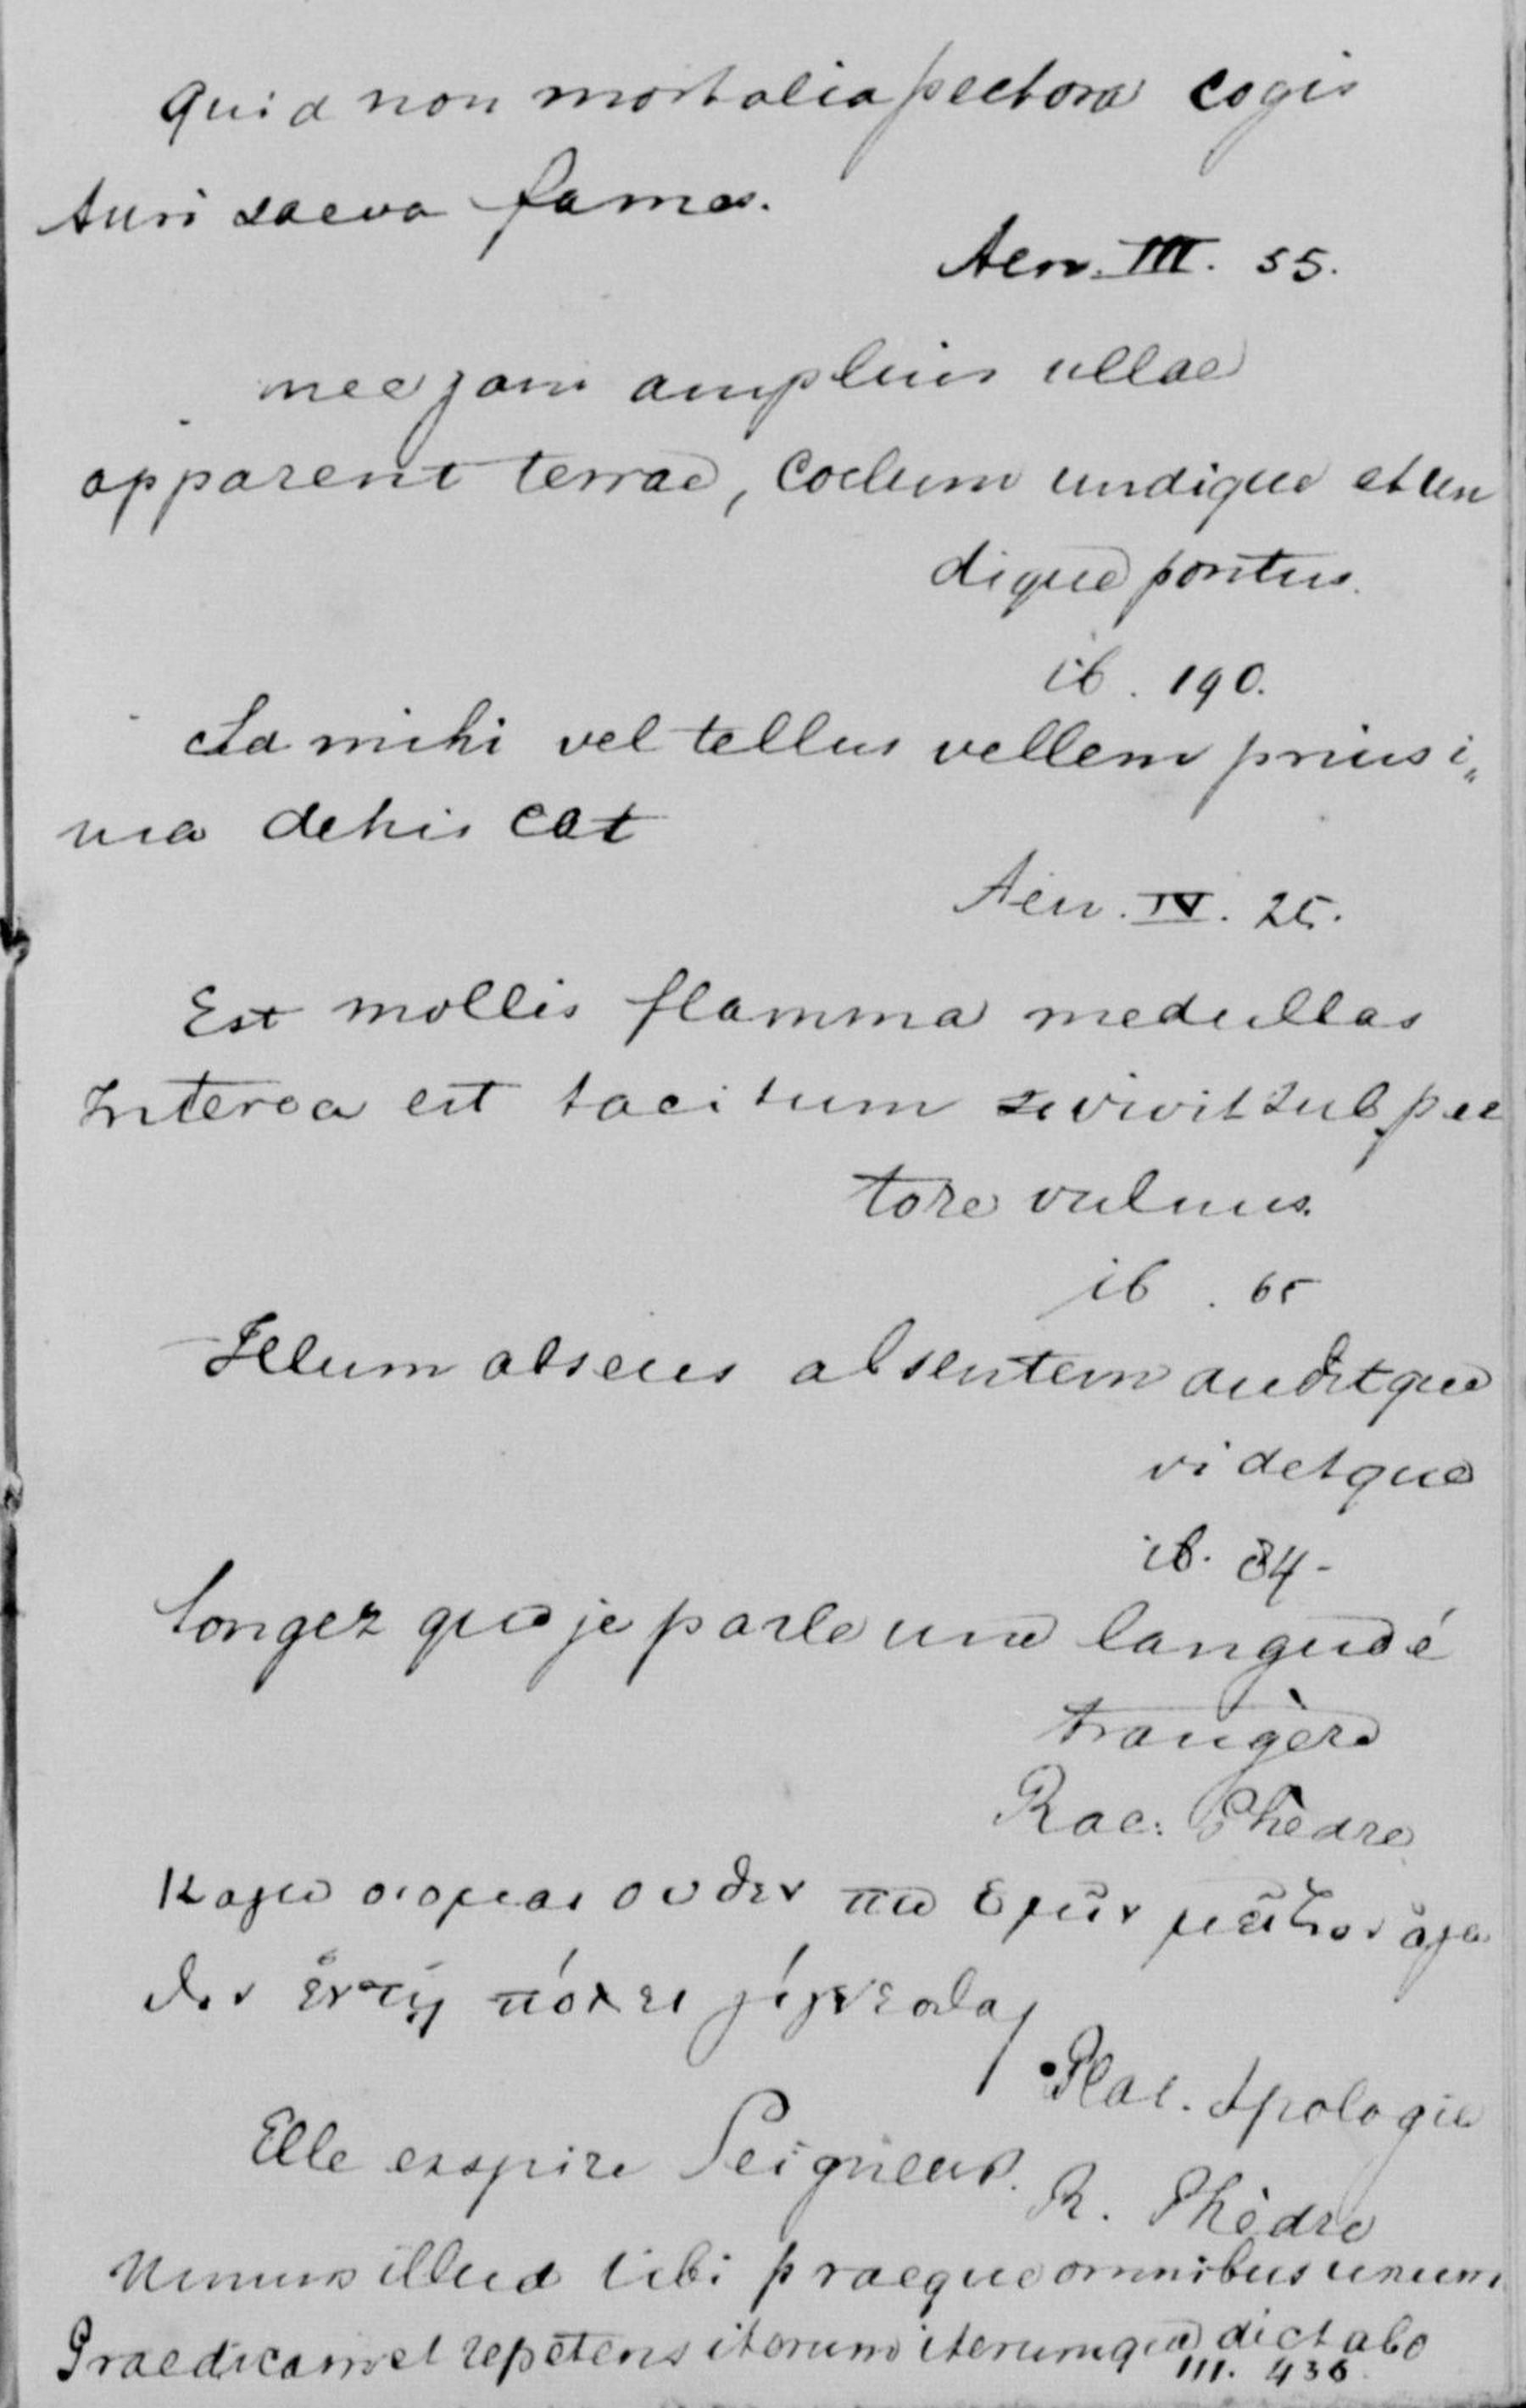 Quid non mortalia pectora cogis
Auri saeva fames.
Aen. III. 55.
nec jam amplius ullae
apparent terrae, Coelum undique et un
dique pontus.
ib. 190.
Sed mihi vel tellus vellem prius i„
ma dehis cat
Aen. IV. 25.
Est mollis flamma medullas
Interea est tacitum vivit sub pec
tore vulnus.
ib. 65
Illum absens absentem auditque
videtque
ib. 84-
Songez que je parle une langue é
trangère
Rac: Phèdre
Καγω οιομαι ουδεν πω ὑμῖν μεῖζον ἀγα
θον ἐν τῇ πόλει γίγνεσθαι
Plat. Apologie
Elle exspire Seigneur.
R. Phèdre
Unum illud tibi praeque omnibus unum
Praedicam et repetens iterum iterumque dictabo
III. 436